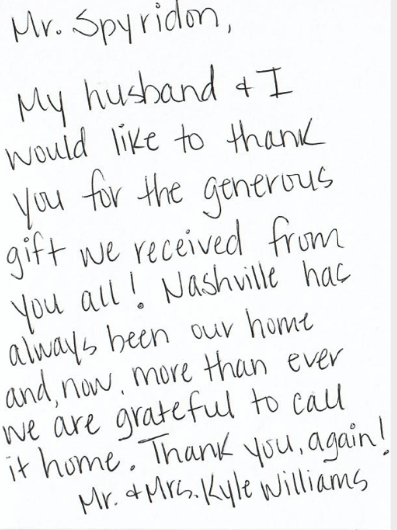 Mr. Spyridon,
My husband & I
would like to thank
you for the generous
gift we received from
you all! Nashville has
always been our home
and, now, more than ever
we are grateful to call
it home. Thank you, again!
Mr. & Mrs. Kyle Williams